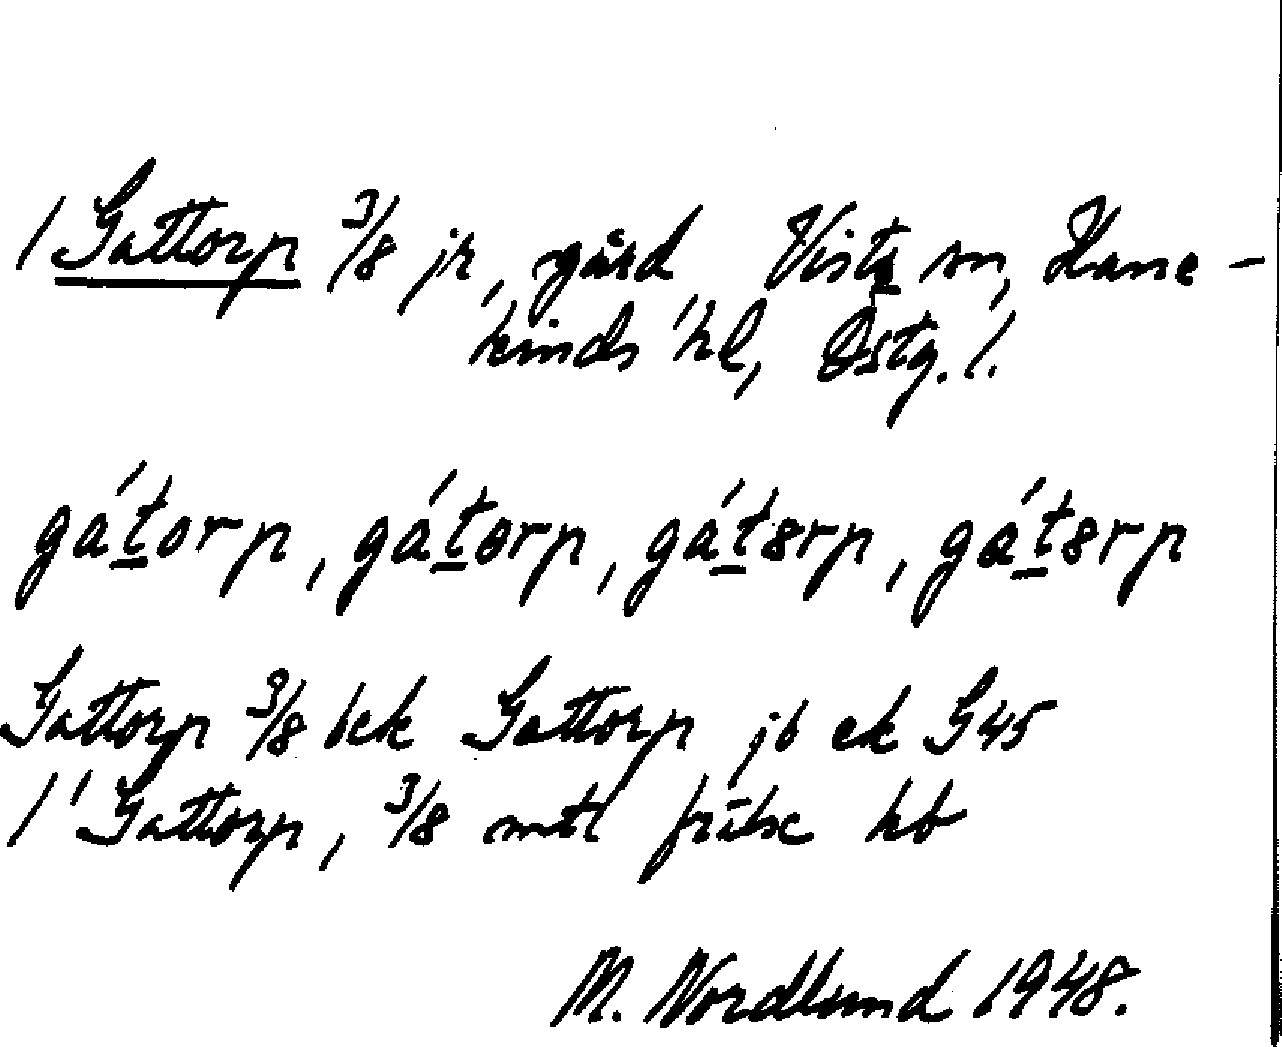 1 Gattorp 3/8 jr, gård, Vists sn, Hane-
kinds hd, Östg. l.
gátorp, gátorp, gátɜrp, gátɜrp
Gattorp 3/8 bek Gattorp jb ek G45
1 Gattorp, 3/8 mtl frälse kb
M. Nordlund 1948.